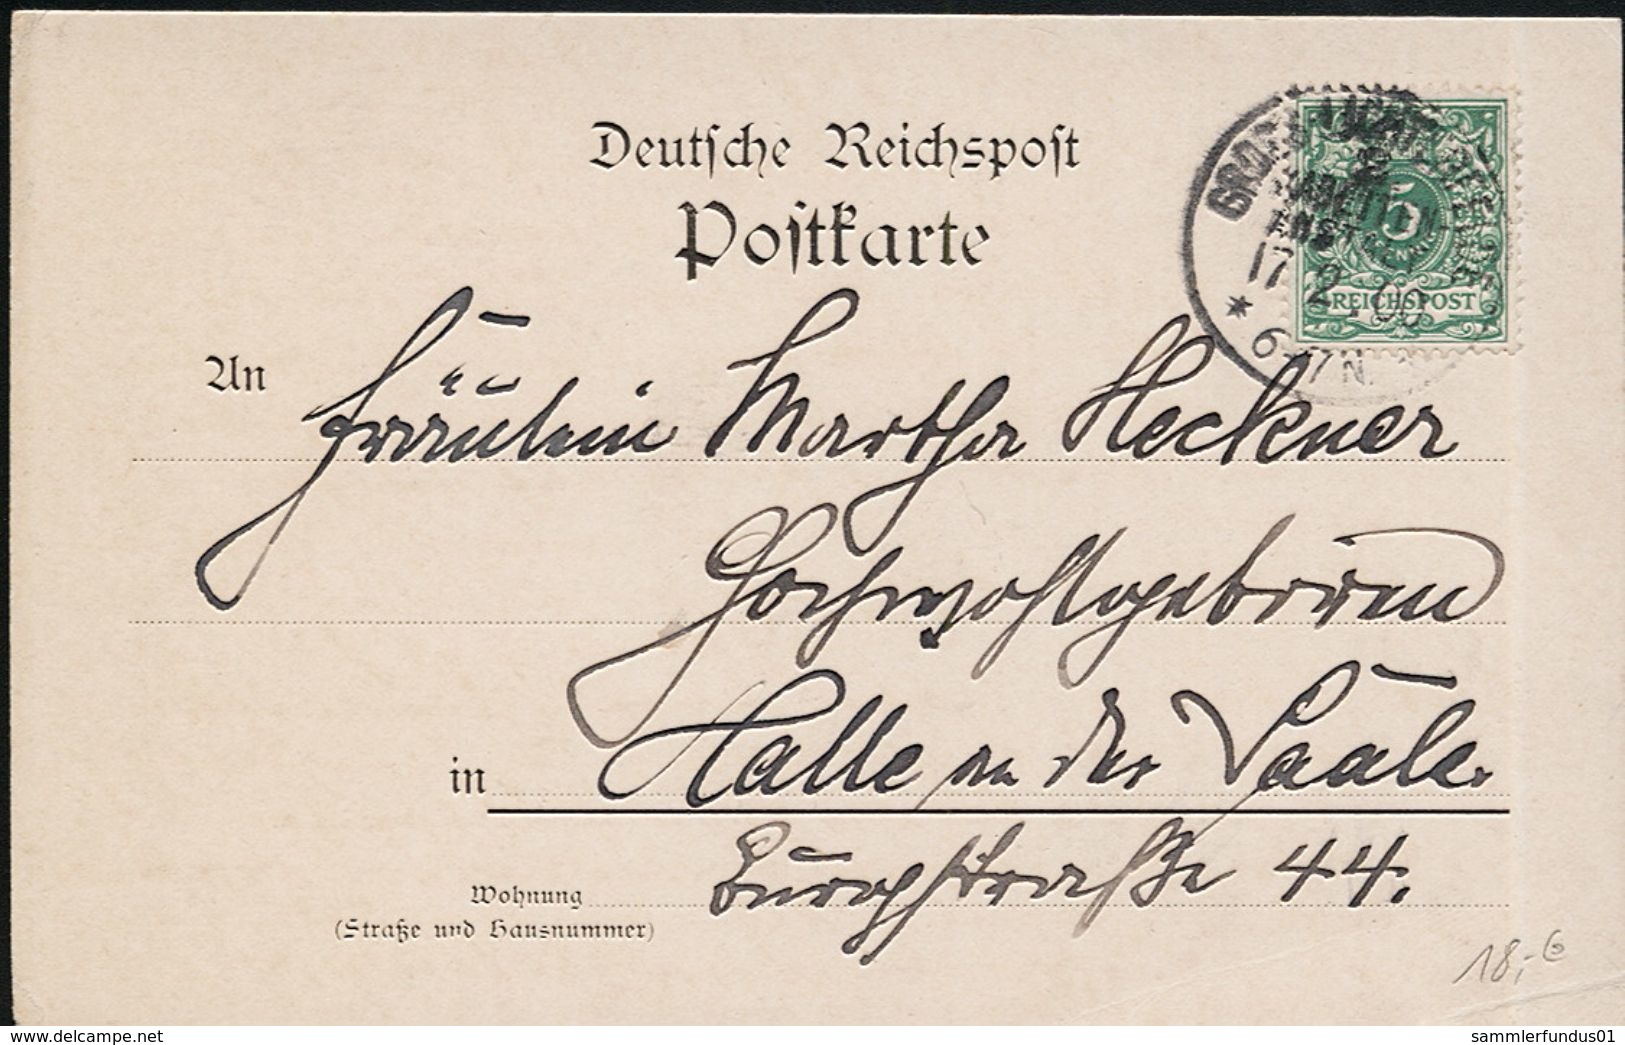 Deutsche Reichspost
Postkarte
GROSS LICHTERFELDE
KADETTEN
ANST
17 2 00
* 6-7 N.
5
PFENNIG
REICHSPOST
An Fräulein Martha Heckner
Hochwohlgeboren
in Halle an der Saale.
Wohnung Burgstraße 44.
(Straße und Hausnummer)
18,-€
www.delcampe.net
sammlerfundus01